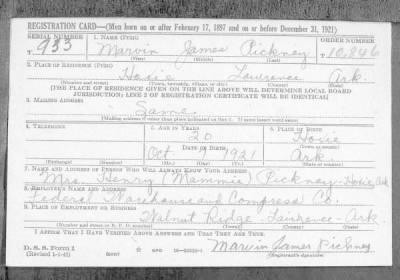 REGISTRATION CARD—(Men born on or after February 17, 1897 and on or before December 31, 1921)
SERIAL NUMBER 1. NAME (Print) ORDER NUMBER
933 Marvin James Pickney 10,846
(First) (Middle) (Last)
2. PLACE OF RESIDENCE (Print)
Hoxie Lawrence Ark.
(Number and street) (Town, township, village, or city) (County) (State)
[THE PLACE OF RESIDENCE GIVEN ON THE LINE ABOVE WILL DETERMINE LOCAL BOARD
JURISDICTION; LINE 2 OF REGISTRATION CERTIFICATE WILL BE IDENTICAL]
3. MAILING ADDRESS
Same
[Mailing address if other than place indicated on line 2. If same insert word same]
4. TELEPHONE 5. AGE IN YEARS 6. PLACE OF BIRTH
20 Hoxie
DATE OF BIRTH
Oct 1921 Ark.
(Exchange) (Number) (Mo.) (Day) (Yr.) (State or country)
7. NAME AND ADDRESS OF PERSON WHO WILL ALWAYS KNOW YOUR ADDRESS
Mrs. Henry (Mammie) Pickney - Hoxie, Ark
8. EMPLOYER'S NAME AND ADDRESS
Federal Warehouse and Compress Co.
9. PLACE OF EMPLOYMENT OR BUSINESS
Walnut Ridge Lawrence - Ark.
(Number and street or R. F. D. number) (Town) (County) (State)
I AFFIRM THAT I HAVE VERIFIED ABOVE ANSWERS AND THAT THEY ARE TRUE.
D. S. S. Form 1 GPO Marvin James Pickney
(Revised 1-1-42) (Registrant's signature)